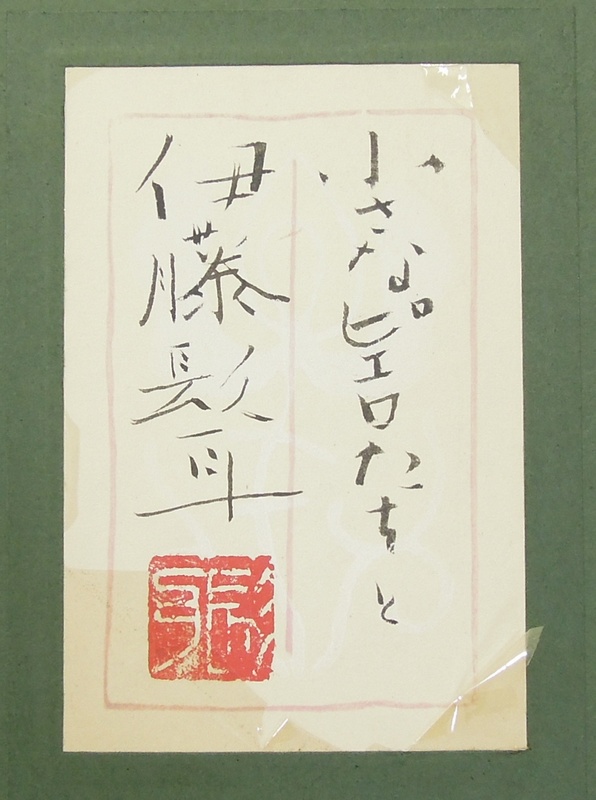 小さなピエロたちと
伊藤髟耳